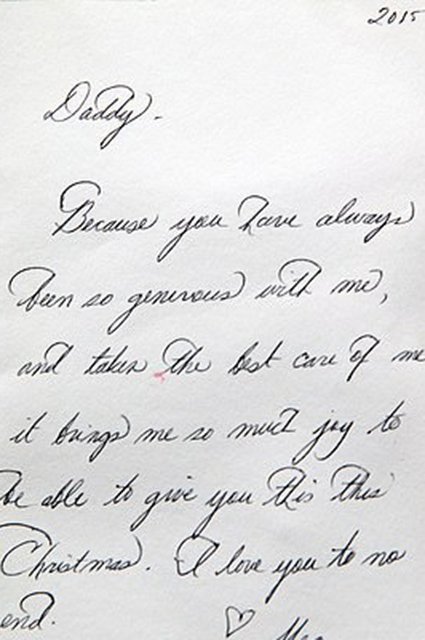 2015
Daddy.
Because you have always
been so generous with me,
and taken the best care of me
it brings me so much joy to
be able to give you this this
Christmas. I love you to no
end.